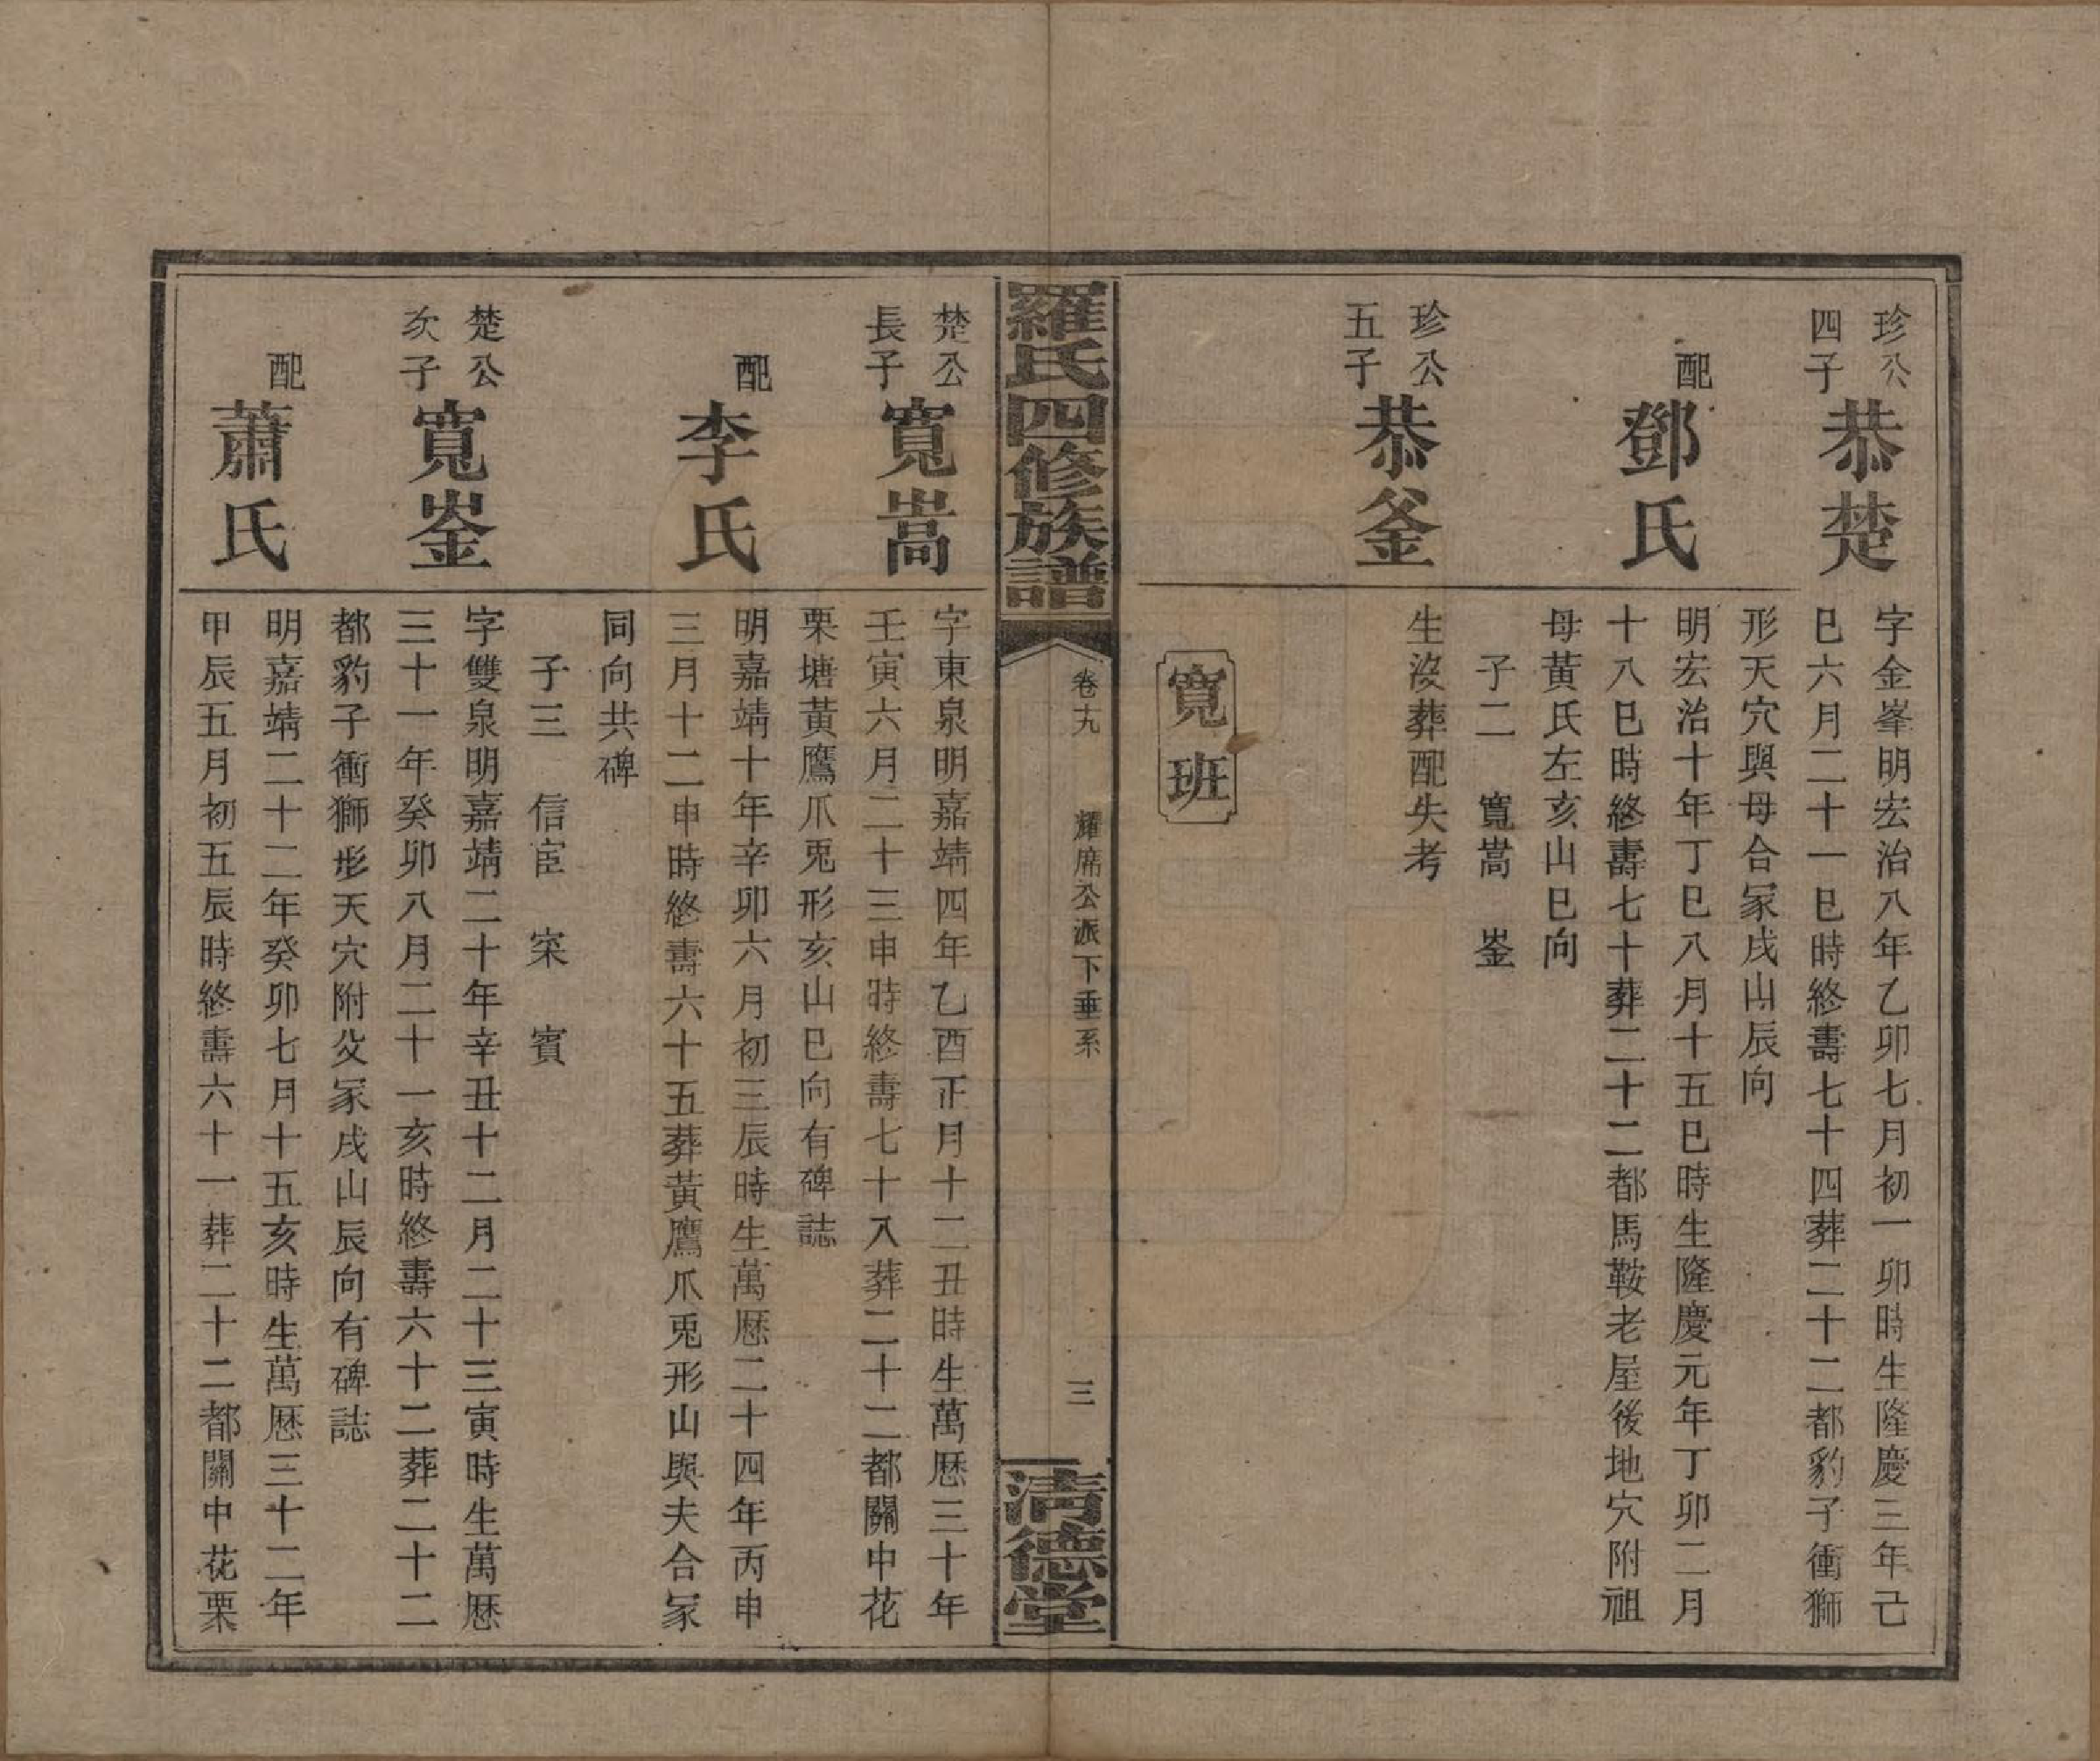 珍公
四子
恭楚
字金峯明宏治八年乙卯七月初一卯時生隆慶三年己
巳六月二十一巳時終壽七十四葬二十二都豹子衝獅
形天穴與母合冢戌山辰向
配
鄧氏
明宏治十年丁巳八月十五巳時生隆慶元年丁卯二月
十八巳時終壽七十葬二十二都馬鞍老屋後地穴附祖
母黄氏左亥山巳向
子二　寬嵩　崟
珍公
五子
恭釜
生沒葬配失考
寬班
羅氏四修族譜
卷九
耀席公派下垂系
三
清德堂
楚公
長子
寬嵩
字東泉明嘉靖四年乙酉正月十二丑時生萬厯三十年
壬寅六月二十三申時終壽七十八葬二十二都關中花
栗塘黃鷹爪兎形亥山巳向有碑誌
配
李氏
明嘉靖十年辛卯六月初三辰時生萬厯二十四年丙申
三月十二申時終壽六十五葬黃鷹爪兎形山與夫合冢
同向共碑
子三　信宦　寀　賓
楚公
次子
寬崟
字雙泉明嘉靖二十年辛丑十二月二十三寅時生萬厯
三十一年癸卯八月二十一亥時終壽六十二葬二十二
都豹子衝獅形天穴附父冢戌山辰向有碑誌
配
蕭氏
明嘉靖二十二年癸卯七月十五亥時生萬厯三十二年
甲辰五月初五辰時終壽六十一葬二十二都關中花栗